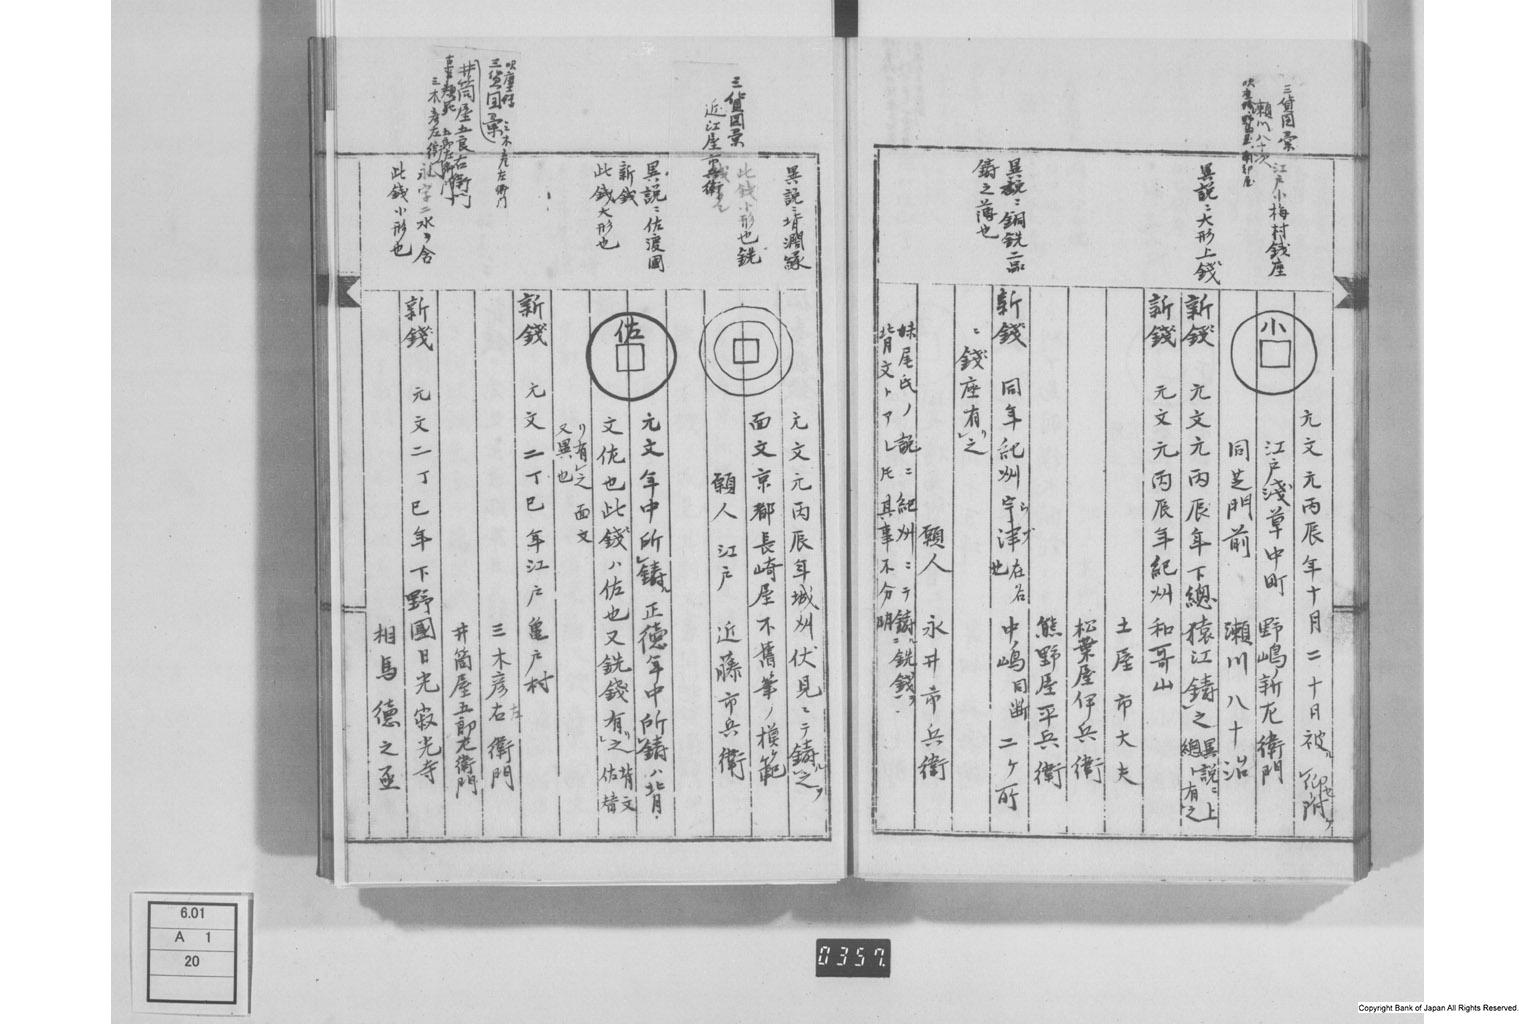 三貨図彙
江戸小梅村銭座
瀬川八十次
異説ニ大形上銭
異説ニ銅銑二品
鋳之薄也
小
元文元丙辰年十月二十日被仰附
江戸浅草中町 野嶋新左衛門
同芝門前 瀬川八十治
新銭 元文元丙辰年下總猿江鋳之 異説ニ上總有之
新銭 元文元丙辰年紀州和哥山
土屋市大夫
松葉屋伊兵衛
熊野屋平兵衛
新銭 同年紀州宇津 在名也 中嶋同断 二ケ所
ニ銭座有之
願人 永井市兵衛
妹尾氏ノ説ニ紀州ニテ鋳ル銑銭ニ
背文トアレ𪜈其事不分明
三貨図彙
近江屋市兵衛
異説ニ背濶縁
此銭小形也銑
異説ニ佐渡国
新銭
此銭大形也
吹塵録
三木彦左衛門
三貨図彙
井筒屋五良右衛門
三木彦左衛門
永字二水ヲ含
此銭小形也
元文元丙辰年城州伏見ニテ鋳之
面文京都長崎屋不舊筆ノ模範
願人 江戸 近藤市兵衛
佐
元文年中所鋳正徳年中所鋳ハ背
文佐也此銭ハ佐也又銑銭有之 背文佐
リ有之面文
又異也
新銭 元文二丁巳年江戸亀戸村
三木彦右衛門
左
井筒屋五郎左衛門
新銭 元文二丁巳年下野國日光寂光寺
相馬徳之丞
6.01
A 1
20
0357.
Copyright Bank of Japan All Rights Reserved.